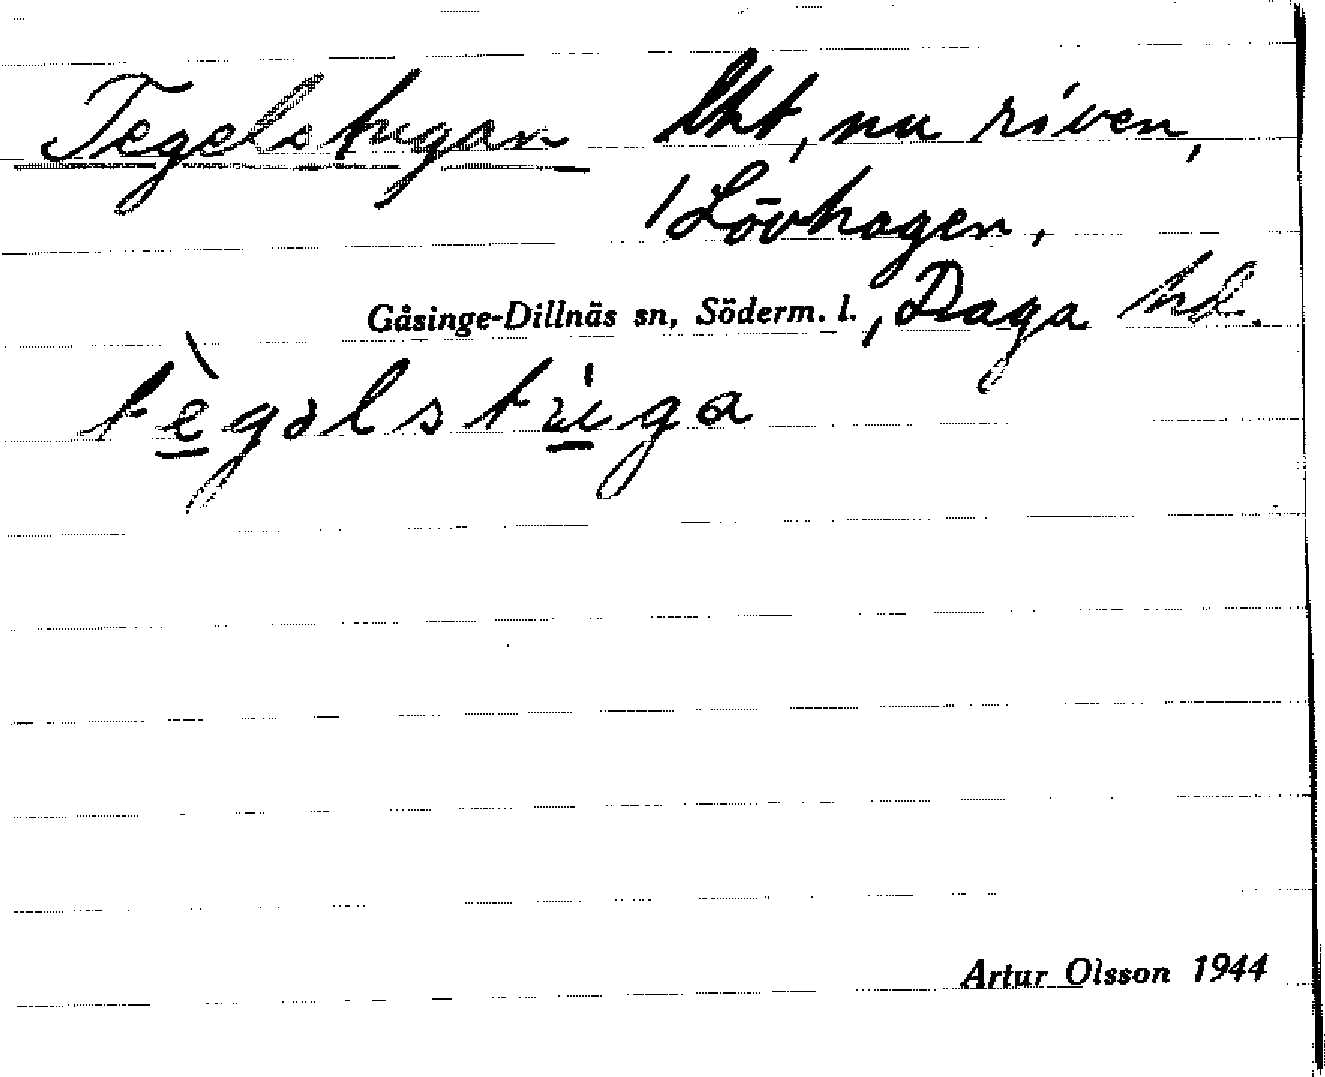 Tegelstugan lht, nu riven,
/Lövhagen,
Gåsinge-Dillnäs sn, Söderm. l., Daga hd.
tègəlstu̇ga
Artur Olsson 1944